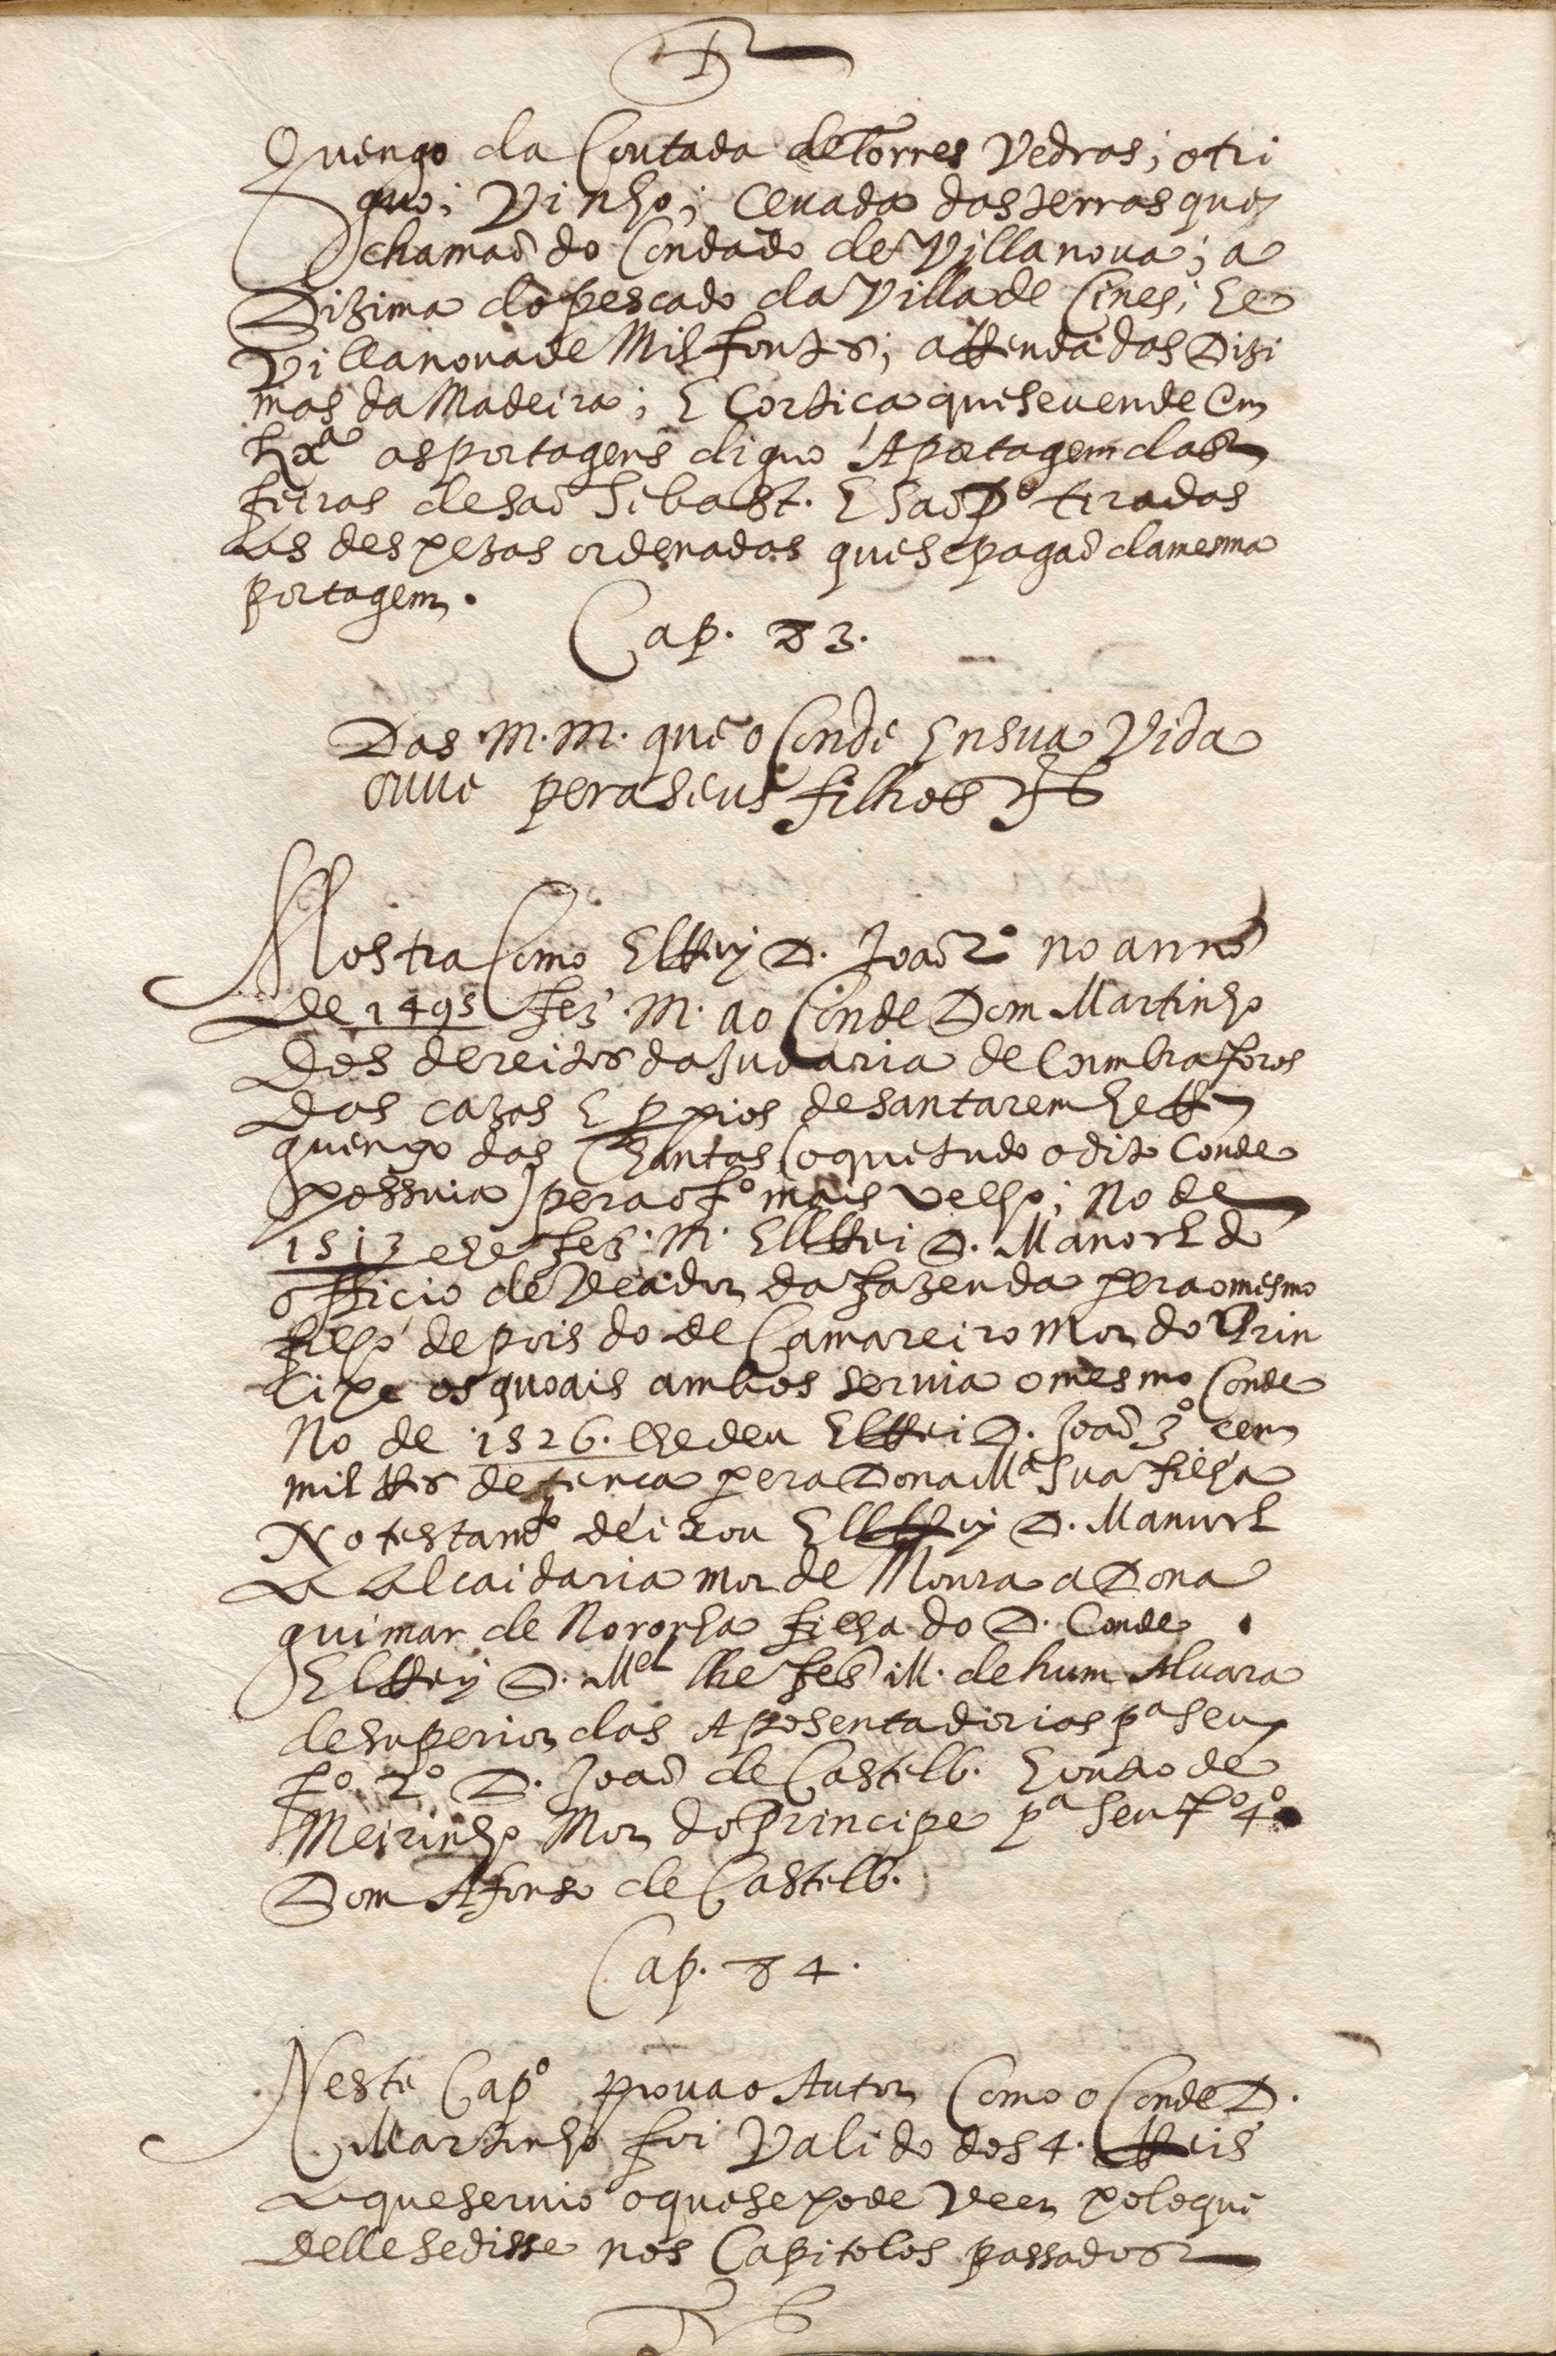 quengo da Contada de Torres Vedras; o tri
guo; Vinho; Cevada das terras que
chamaõ do Condado de Villa nova; a
Dizima do pescado da Villa de Cines; he
Villa nova de Mil fontes; a Renda das Dizi
mas da Madeira; E Cortica que se vende Em
Lxª as portagens diguo A portagem das
feiras de saõ Sebast. E saõ tiradas
As despezas ordenadas que se pagaõ da mesma
portagem.
Cap. 83.
Das M. M. que o Conde En sua Vida
ouve pera seus filhos
Mostra Como ElRey D. Joaõ 2º no anno
de 1495 fez M. ao Conde Dom Martinho
Dos dereitos da Judaria de Coimbra foros
das cazas E ppios de santarem he Re
quengo das Chantas (o que tudo o dito Conde
possuia) pera o fº mais velho; No de
1513 lhe fez M. ElRei D. Manoel do
officio de Veador da fazenda pera o mesmo
filho depois do de Camareiro Mor do Prin
cipe os quoais ambos servia o mesmo Conde
No de 1526. lhe deu ElRei D. Joaõ 3º cem
mil Rs de tenca pera Dona Mª sua filha
No testamto deixou ElRey D. Manuel
A Alcaidaria mor de Moura a Dona
guimar de Noronha filha do D. Conde
ElRey D. Mel lhe fes M. de hum Alvara
de superior das Aposentadorias pª seu
fº 2º D. Joaõ de Castelb. E outro de
Meirinho Mor do Principe pª seu fº 4º
Dom Afonso de Castelb.
Cap. 84.
Neste Capº prova o Autor Como o Conde D.
Martinho foi Valido dos 4. Reis
A que servio o que se pode Veer pelo que
delle se disse nos Capitolos passados